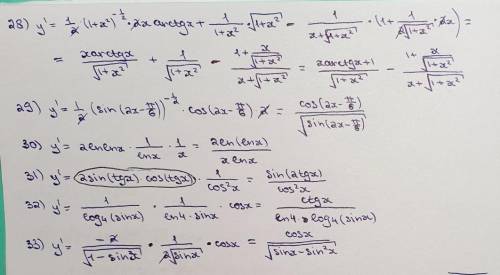 28) y' = 1/2 · (1+x²)^(-1/2) · 2x arctgx + 1/(1+x²) · √(1+x²) - 1/(x+√(1+x²)) · (1 + 1/(2√(1+x²)) · 2x) =
= xarctgx/√(1+x²) + 1/√(1+x²) - (1 + x/√(1+x²))/(x+√(1+x²)) = (xarctgx+1)/√(1+x²) - (1 + x/√(1+x²))/(x+√(1+x²))
29) y' = 1/2 (sin(2x-π/6))^(-1/2) · cos(2x-π/6) · 2 = cos(2x-π/6)/√(sin(2x-π/6))
30) y' = 2lnlnx · 1/lnx · 1/x = 2ln(lnx)/(xlnx)
31) y' = 2sin(tgx) · cos(tgx) · 1/cos²x = sin(2tgx)/cos²x
32) y' = 1/log4(sinx) · 1/(ln4 · sinx) · cosx = ctgx/(ln4 · log4(sinx))
33) y' = -2/√(1-sinx) · 1/(2√sinx) · cosx = cosx/√(sinx-sin²x)